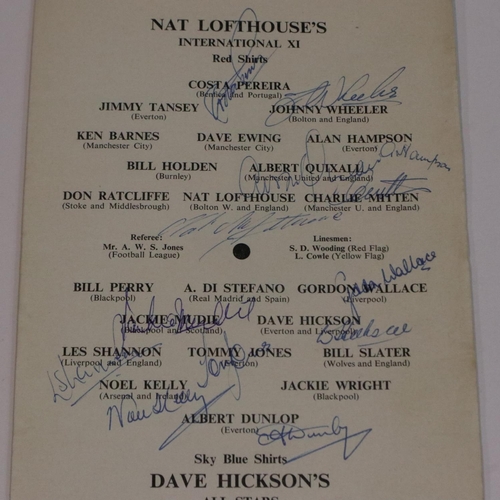 NAT LOFTHOUSE'S
INTERNATIONAL XI
Red Shirts
COSTA PEREIRA
(Benfica and Portugal)
JIMMY TANSEY JOHNNY WHEELER
(Everton) (Bolton and England)
KEN BARNES DAVE EWING ALAN HAMPSON
(Manchester City) (Manchester City) (Everton)
BILL HOLDEN ALBERT QUIXALL
(Burnley) (Manchester United and England)
DON RATCLIFFE NAT LOFTHOUSE CHARLIE MITTEN
(Stoke and Middlesbrough) (Bolton W. and England) (Manchester U. and England)
Nat Lofthouse
Referee: Linesmen:
Mr. A. W. S. Jones S. D. Wooding (Red Flag)
(Football League) L. Cowle (Yellow Flag)
BILL PERRY A. DI STEFANO GORDON WALLACE
(Blackpool) (Real Madrid and Spain) (Liverpool)
JACKIE MUDIE DAVE HICKSON
(Blackpool and Scotland) (Everton and Liverpool)
LES SHANNON TOMMY JONES BILL SLATER
(Liverpool and England) (Everton) (Wolves and England)
NOEL KELLY JACKIE WRIGHT
(Arsenal and Ireland) (Blackpool)
ALBERT DUNLOP
(Everton)
Sky Blue Shirts
DAVE HICKSON'S
ALL STARS